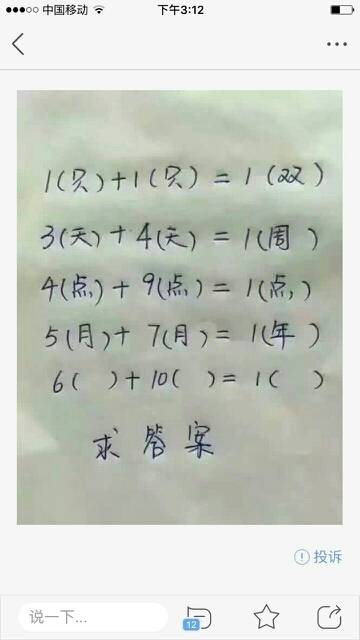 中国移动 下午3:12
1(只)+1(只)=1(双)
3(天)+4(天)=1(周)
4(点)+9(点)=1(点)
5(月)+7(月)=1(年)
6( )+10( )=1( )
求答案
投诉
说一下... 12